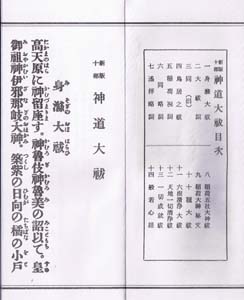 神道大祓目次
一 身滌大祓
二 大祓
三 同
四 鳥居之祓
五 稲荷祝詞
六 同略詞
七 遙拝略詞
八 稲荷五社大神祓
九 稲荷大神秘文
十 十種大祓
十一 六根清浄大祓
十二 天地一切清浄祓
十三 一切成就祓
十四 般若心経
神道大祓
身滌大祓
高天原に神留座す。神魯伎神魯美の詔以て。皇
御祖神伊邪那岐大神。筑紫の日向の橘の小戸